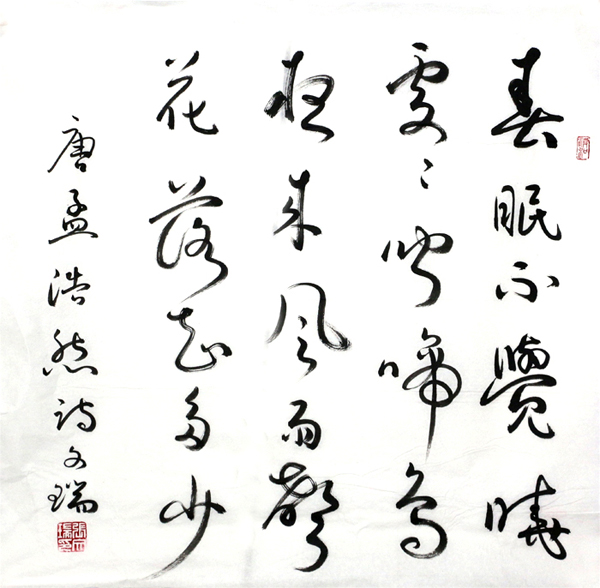 春眠不覺曉
處々聞啼鳥
夜来風雨聲
花落知多少
唐孟浩然詩文瑞